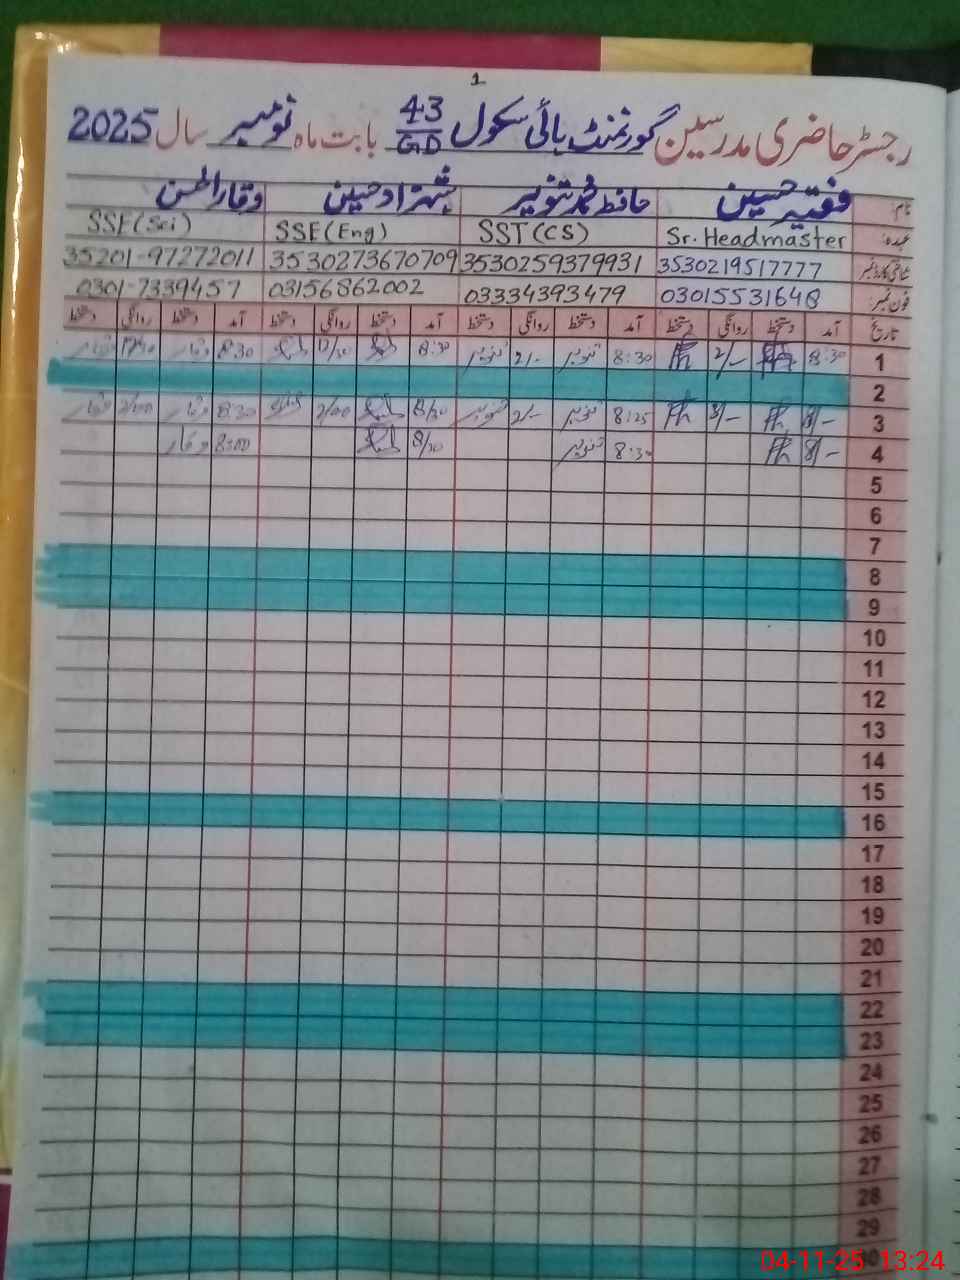 1
رجسٹر حاضری مدرسین گورنمنٹ ہائی سکول 43/GD بابت ماہ نومبر سال 2025
نام: فقیر حسین حافظ محمد تنویر شہزاد حسین وقار الحسن
عہدہ: Sr. Headmaster SST(CS) SSE(Eng) SSE(Sci)
شناختی کارڈ نمبر 3530219517777 3530259379931 3530273670709 35201-97272011
فون نمبر: 03015531648 03334393479 03156862002 0301-7339457
تاریخ آمد دستخط روانگی دستخط آمد دستخط روانگی دستخط آمد دستخط روانگی دستخط آمد دستخط روانگی دستخط
1 8:30 2/- 8:30 تنویر 2/- تنویر 8:30 12/30 8:30 وقار
2
3 8:25 تنویر 2/- تنویر 8/30 2/00 8:30 وقار 2/00 وقار
4 8/- 8:30 تنویر 8/30 8:00 وقار
5
6
7
8
9
10
11
12
13
14
15
16
17
18
19
20
21
22
23
24
25
26
27
28
29
30
04-11-25 13:24